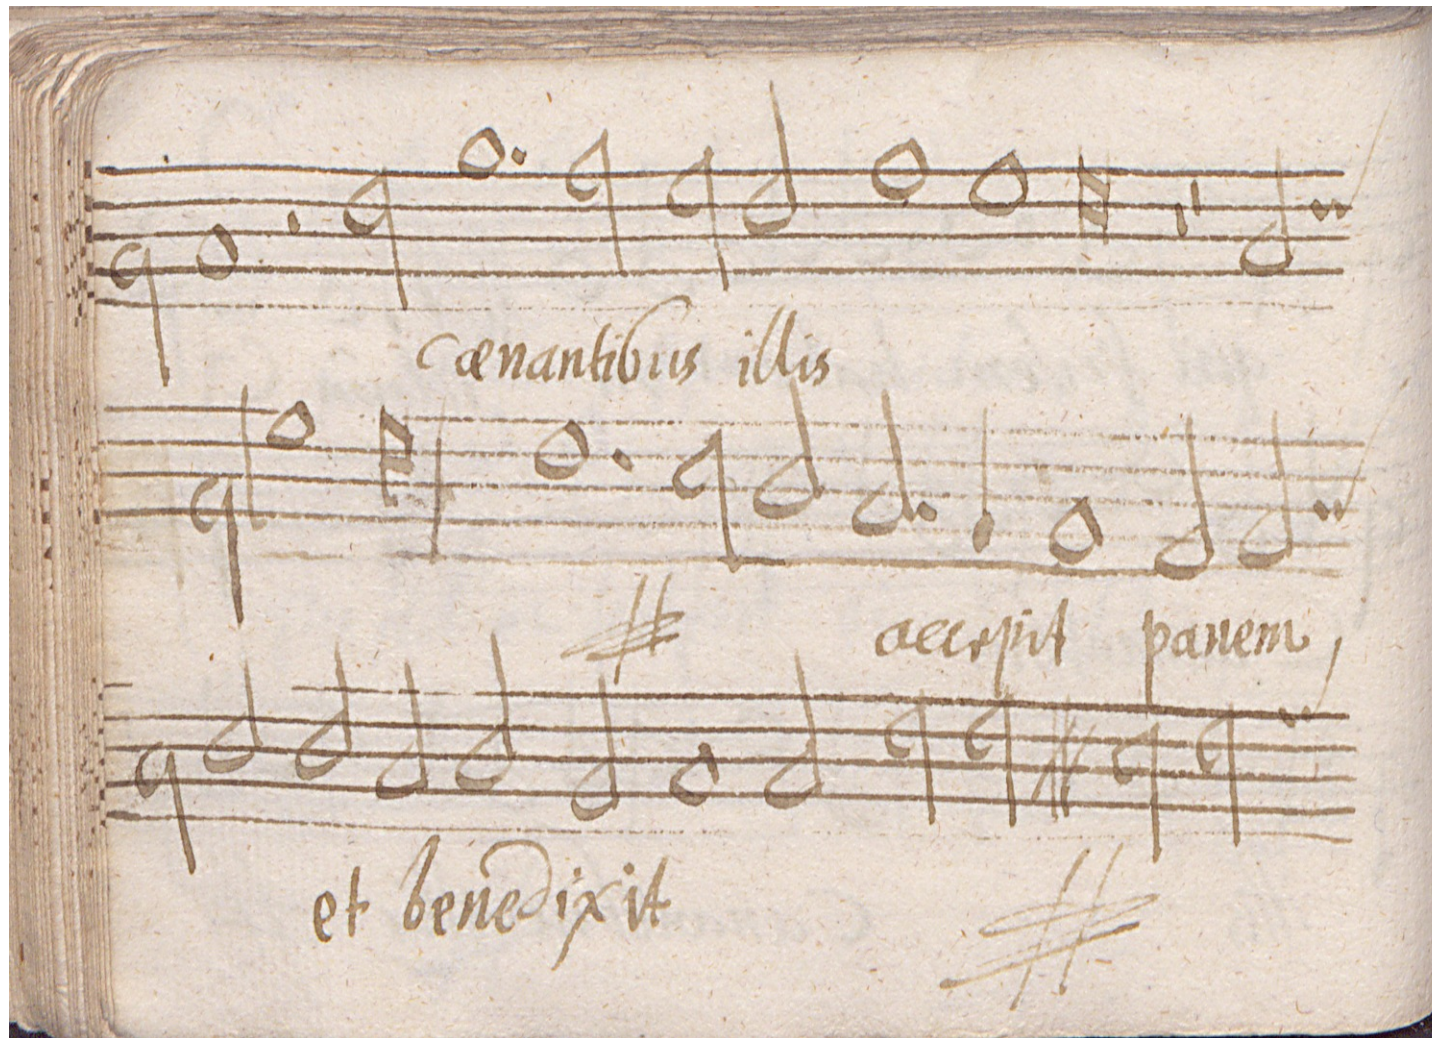 Cœnantibus illis
accepit panem
et benedixit